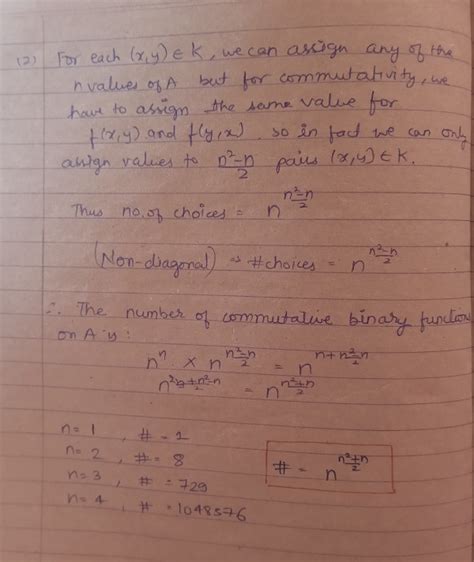 (2) For each (x,y) ∈ K, we can assign any of the
n values of A but for commutativity, we
have to assign the same value for
f(x,y) and f(y,x). so in fact we can only
assign values to (n²-n)/2 pairs (x,y) ∈ K.
Thus no. of choices = n^((n²-n)/2)
(Non-diagonal) ⇒ #choices = n^((n²-n)/2)
∴ The number of commutative binary function
on A is:
n^n × n^((n²-n)/2) = n^(n+(n²-n)/2)
= n^((n²+n)/2)
n=1 , # = 1
n=2 , # = 8
n=3 , # = 729
n=4 , # = 1048576
# = n^((n²+n)/2)